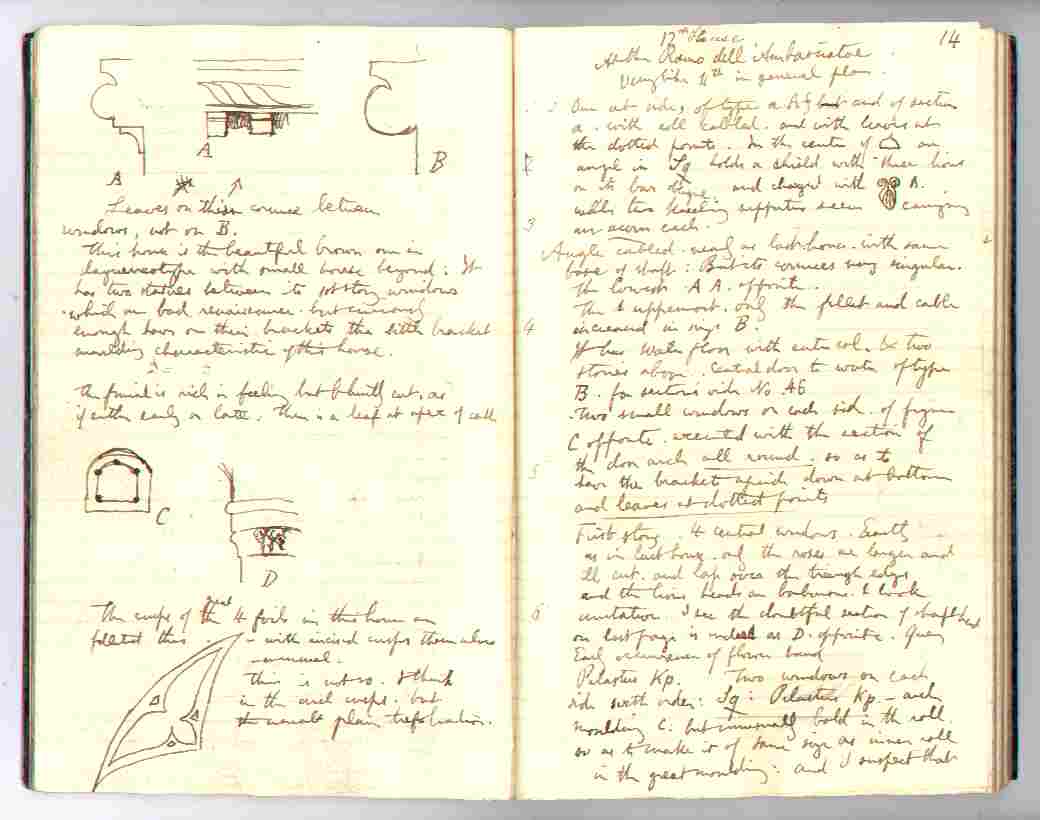 A
A
B
Leaves on this cornice between
windows, not on B.
This house is the beautiful brown one in
daguereotype with small house beyond: It
has two statues between its 1st story windows
which are bad renaissance. but curiously
enough have on their brackets the little bracket
moulding characteristic of this house.
The finial is rich in feeling but bluntly cut, as
if either early or late. There is a leaf at apex of each
C
D
The cusps of the great 4 foils in this house are
filleted thus - with incised cusps themselves
unusual.
This is not so. I think
in the arch cusps. but
the usual plain trefoliation.
14
17th House
At the Ramo dell Ambasciatore
Very like 4th in general plan.
One at side, of type a and of section
a. with roll cabled. and with leaves at
the dotted points. In the centre of an
angel in Sq holds a shield with three lions
on its bar and charged with A.
with two kneeling supporters seem carrying
an acorn each.
3
Angle cabled. nearly as last house. with same
base of shaft: But its cornices very singular.
The lowest A A. opposite.
The uppermost. only the fillet and cable
increased in size B.
4
It has water floor with entresol. & two
stories above. Central door to water of type
B. for section vide No 46
Two small windows on each side. of figure
C opposite. executed with the section of
the door arch all round. so as to
have the bracket upside down at bottom
and leaves at dotted points
5
First story 4 central windows. Exactly
as in last house. only the roses are larger and
ill cut. and lap over the triangle edges
and the lions heads on balcony. look
6
imitation. I see the doubtful section of shaft head
on last page is indeed as D. opposite. Query
Early occurrence of flower band
Pilasters Kp. Two windows on each
side with order: Sq: Pilasters Kp - arch
moulding C. but unusually bold in the roll.
so as to make it of same size as inner roll
in the great moulding. and I suspect that